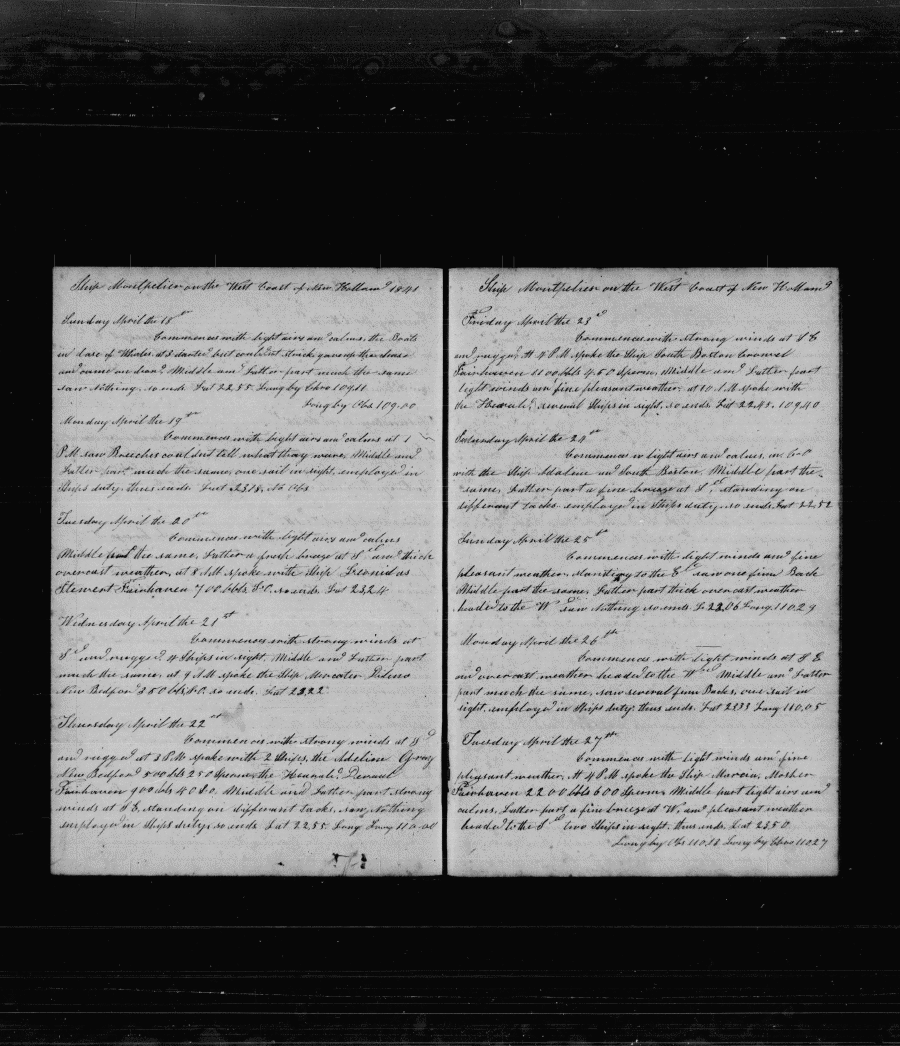 Ship Montpelier on the West Coast of New Holland 1841
Sunday April the 18th
Commences with light airs and calms, the Boats
in chase of Whales, at but couldnt strike gave up the chase
and came on board Middle and Latter part much the same
saw nothing, so ends Lat 22.55 Long by Chro 109.11
Long by Obs 109.00
Monday April the 19th
Commences with light airs and calms at 1
P.M saw Breeches couldnt tell what they were, Middle and
Latter part much the same, one sail in sight, employed in
Ships duty, thus ends Lat 23.18, No Obs
Tuesday April the 20th
Commences with light airs and calms
Middle part the same, Latter a fresh breeze at Sd and thick
overcast weather, at 8 AM spoke with Ship Leonidas
Fairhaven 700 bbls so ends. Lat 23.24
Wednesday April the 21st
Commences with strong winds at
Sd and rugged, 4 Ships in right, Middle and Latter part
much the same, at 9 AM spoke the Ship
New Bedford 350 bbls so ends. Lat 23.22
Thursday April the 22nd
Commences with strong winds at Sd
and rugged at 3 P.M spoke with 2 Ships, the Adeline Gray
New Bedford 500 bbls 250 Sperm, the
Fairhaven 900 bbls Middle and Latter part strong
winds at S E, standing on different tacks, saw nothing
employed in Ships duty, so ends Lat 22.55 Long
Ship Montpelier on the West Coast of New Holland
Friday April the 23d
Commences with strong winds at S E
and rugged, At 4 P.M spoke the Ship South Boston
Fairhaven 1100 bbls 450 Sperm, Middle and Latter part
light winds and fine pleasant weather, at 10 A.M spoke with
the several Ships in sight, so ends, Lat 22.45. 109.40
Saturday April the 24th
Commences light airs and calms,
with the Ship Adaline and South Boston, Middle part the
same, Latter part a fine breeze at Sd, standing on
different tacks employed in Ships duty, so ends, Lat 22.52
Sunday April the 25th
Commences with light winds and fine
pleasant weather, standing to the Ed saw one finn Back
Middle part the same, Latter part thick overcast weather
headed to the Wd saw nothing so ends. La 22.06 Long. 110.29
Monday April the 26th
Commences with light winds at S E
and overcast weather headed to the Wd Middle and Latter
part much the same, saw several finn Backs, one sail in
sight, employed in Ships duty, thus ends. Lat 23.33 Long 110.05
Tuesday April the 27th
Commences with light winds and fine
pleasant weather, At 4 P.M spoke the Ship Marcia, Mosher
Fairhaven 2200 bbls 600 Sperm, Middle part light airs and
calms, Latter part a fine breeze at W. and pleasant weather
headed to the Sd two Ships in sight, thus ends Lat 23.50
Long by Obs 110.18 Long by Chro 110.27